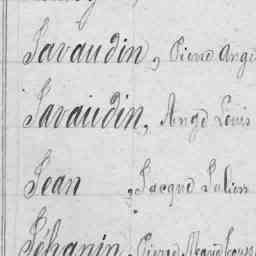 Javaudin, Pierre Ange
Javaudin, Ange Louis
Jean, Jacque Julien
Jéhanin, Pierre